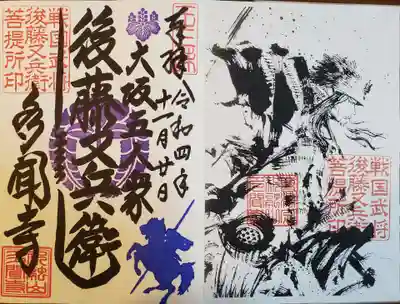 奉拝
令和四年
十一月廿日
大坂五人衆
後藤又兵衛
多聞寺
戦国武将
後藤又兵衛
菩提所印
戦国武将
後藤又兵衛
菩提所印